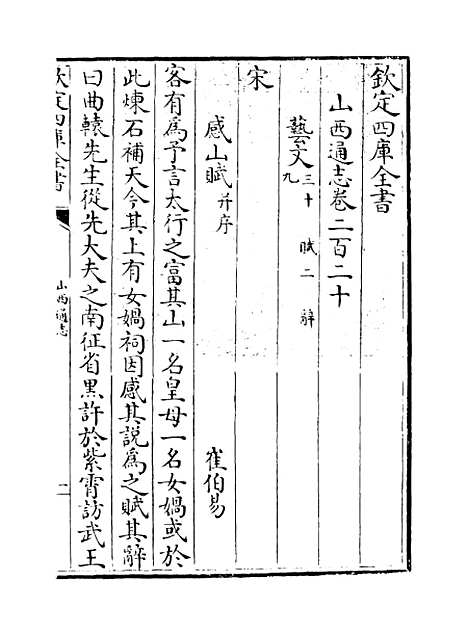 欽定四庫全書
山西通志卷二百二十
藝文三十九 賦二 辭
宋
感山賦并序 崔伯易
客有為予言太行之富其山一名皇母一名女媧或於
此煉石補天今其上有女媧祠因感其說為之賦其辭
曰曲轅先生從先大夫之南征省黒許於紫霄訪武王
欽定四庫全書
山西通志